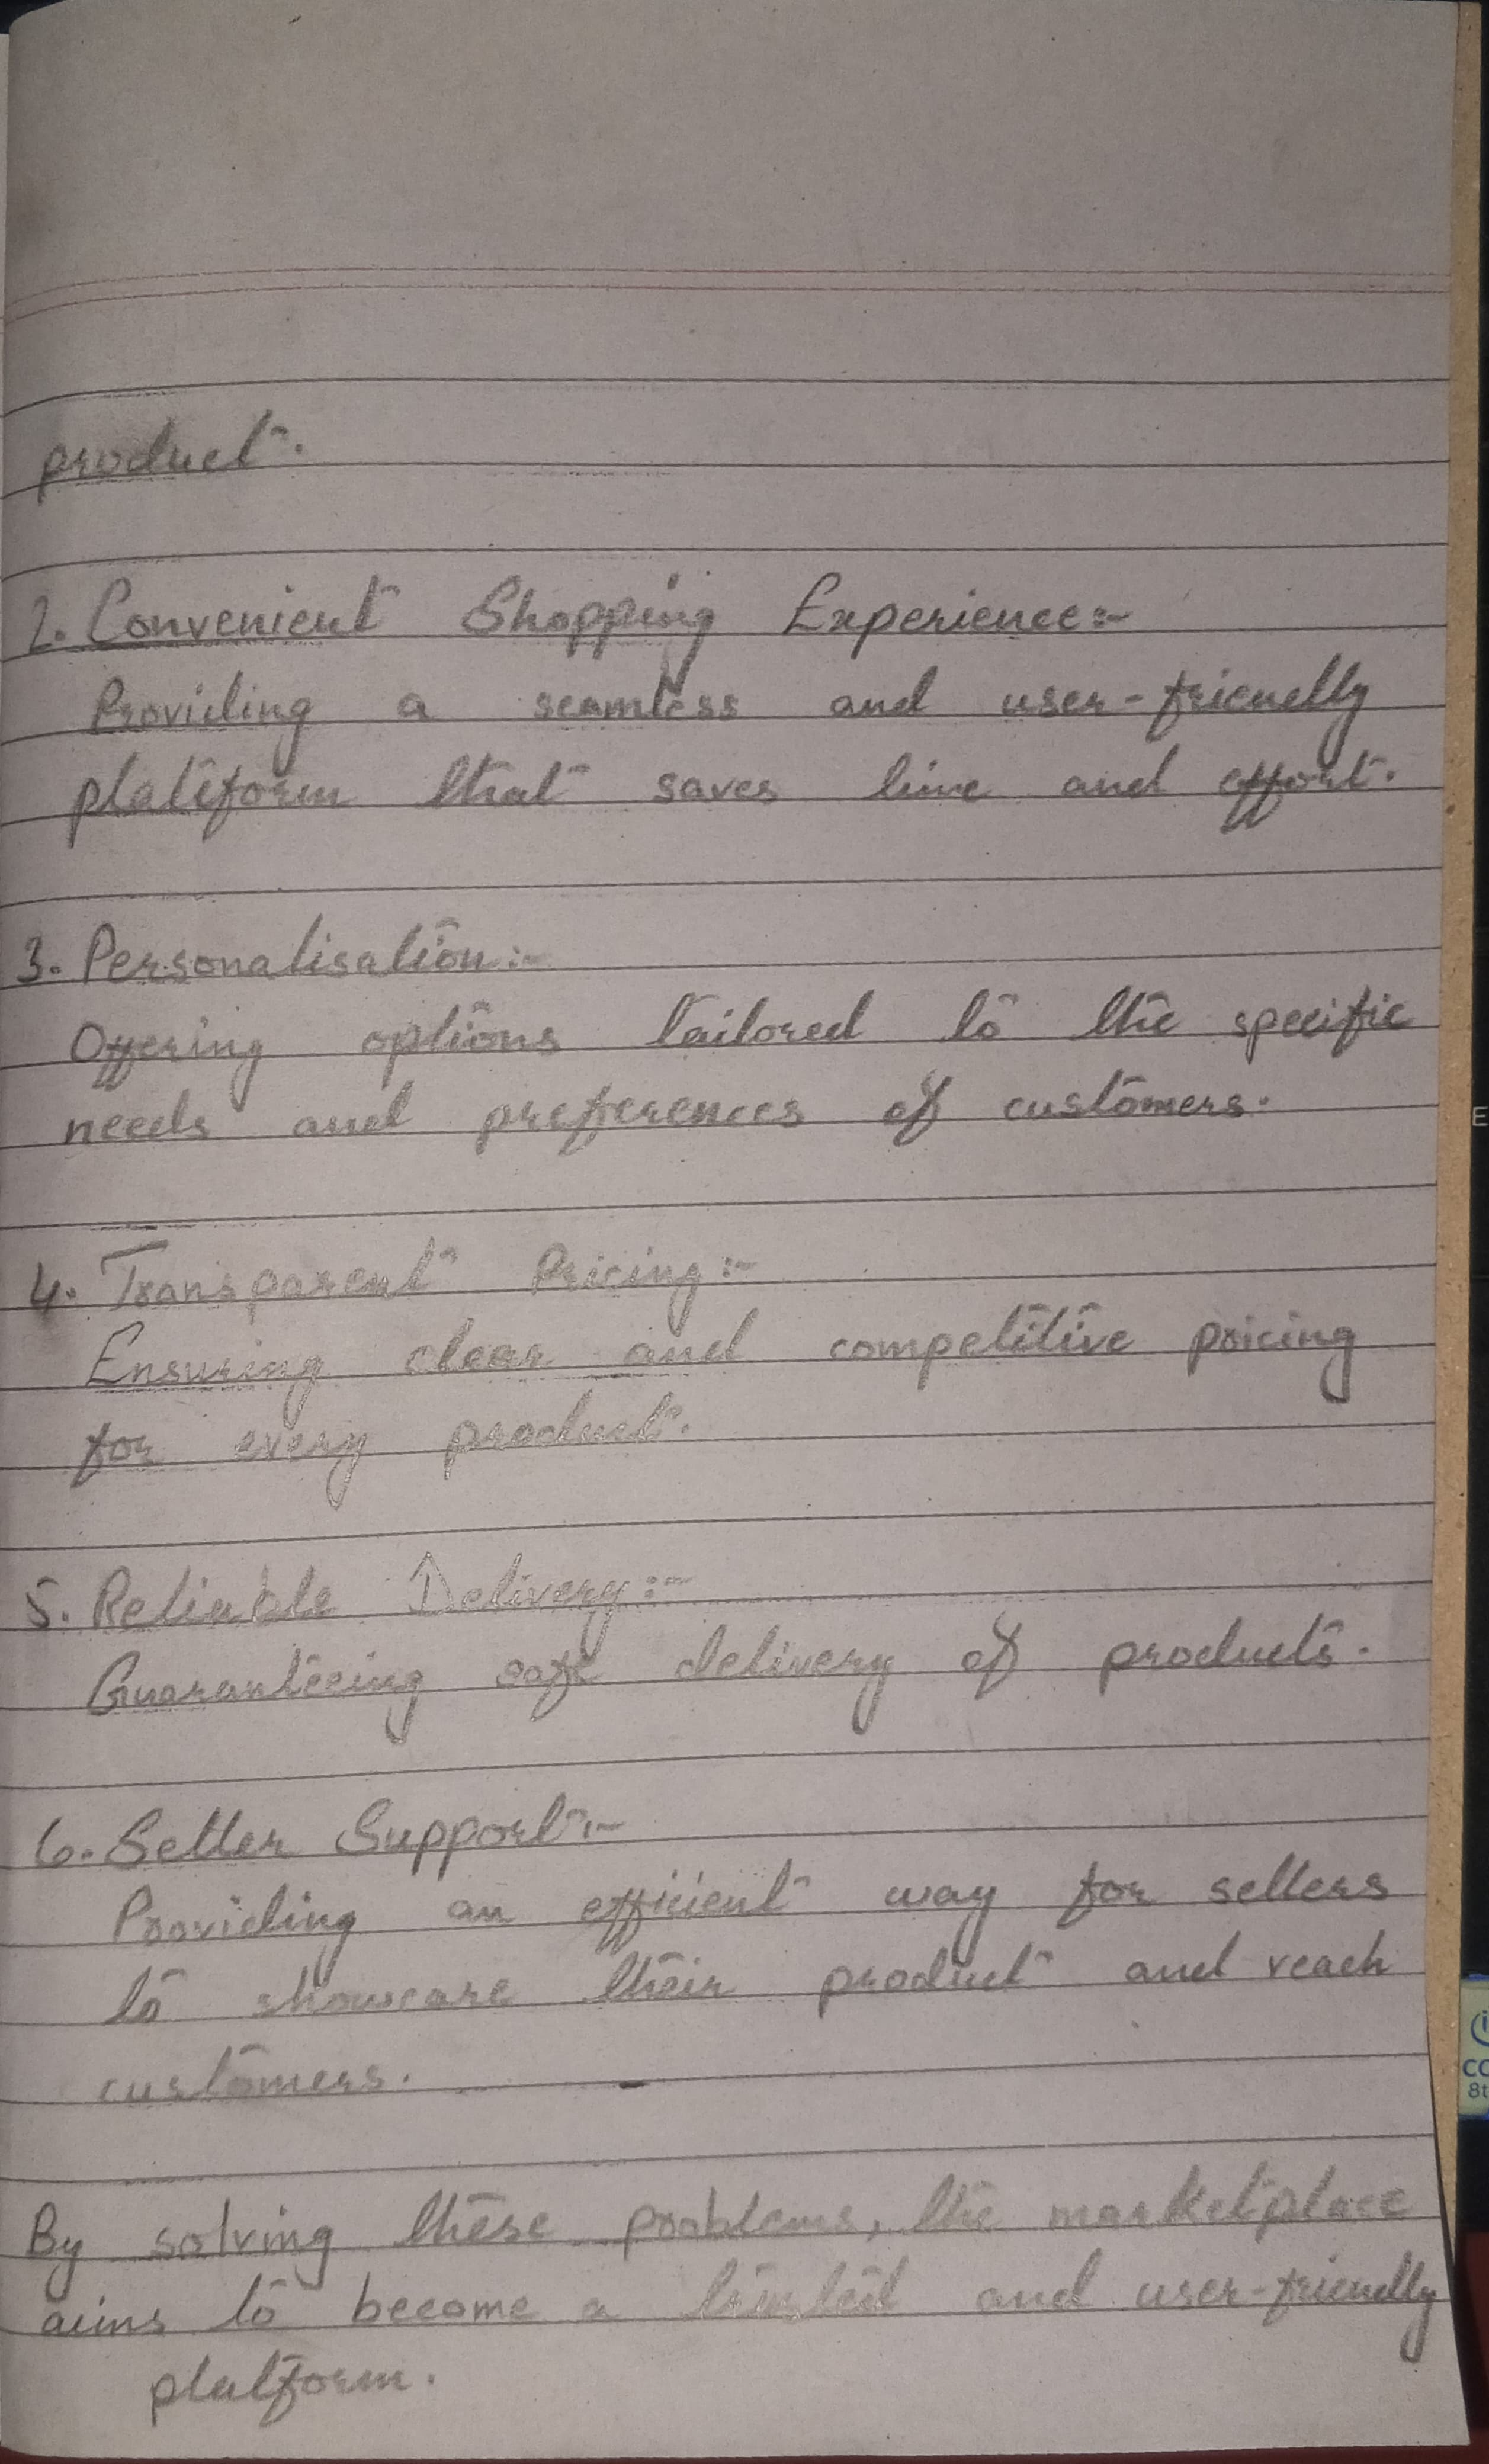 product.
2. Convenient Shopping Experience:-
Providing a seamless and user-friendly
plateform that saves time and effort.
3. Personalisation:-
Offering options tailored to the specific
needs and preferences of customers.
4. Transparent Pricing:-
Ensuring clear and competitive pricing
for every product.
5. Reliable Delivery:-
Guaranteeing safe delivery of products.
6. Seller Support:-
Providing an efficient way for sellers
to showcase their product and reach
customers.
By solving these problems, the marketplace
aims to become a trusted and user-friendly
platform.
E
CO
8t